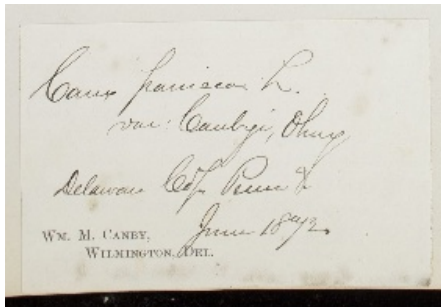 Carex panicea L.
var: Canbyi, Olney
Delaware Co. Penna
June 1872
WM. M. CANBY,
WILMINGTON, DEL.